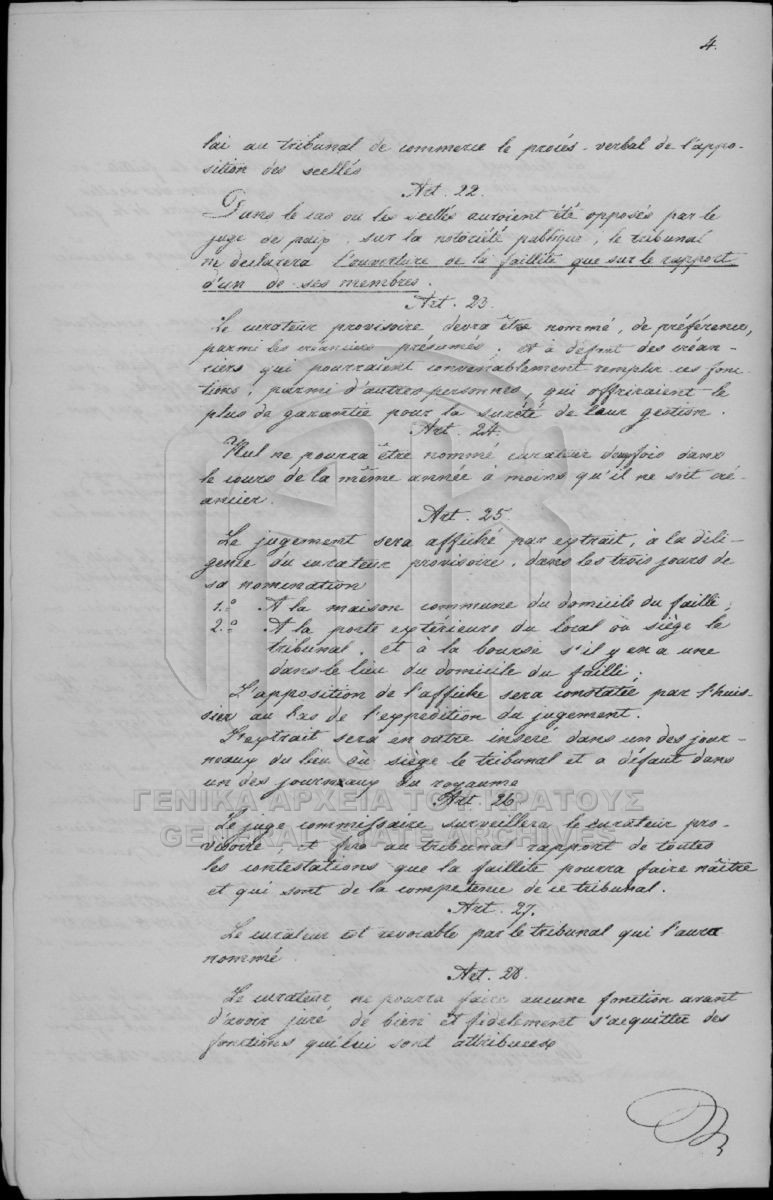 4.
lai au tribunal de commerce le procés-verbal de l'appo-
sition des scellés
Art. 22.
Dans le cas ou les scellés auroient été opposés par le
juge de paix, sur la notoriété publique, le tribunal
ne declarera l'ouverture de la faillite que sur le rapport
d'un de ses membres.
Art. 23.
Le curateur provisoire, devra être nommé, de préférence,
parmi les créanciers présumés; et à défaut des créan-
ciers qui pourraient convenablement remplir ces fonc
tions, parmi d'autres personnes, qui offriraient le
plus de garantie pour la sureté de leur gestion.
Art. 24.
Nul ne pourra être nommé curateur deux fois dans
le cours de la même année à moins qu'il ne soit cré-
ancier.
Art. 25.
Le jugement sera affiché par extrait, à la dili-
gence du curateur provisoire, dans les trois jours de
sa nomination
1.o A la maison commune du domicile du failli,
2.o A la porte extérieure du local où siège le
tribunal, et à la bourse s'il y en a une
dans le lieu du domicile du failli;
L'apposition de l'affiche sera constatée par l'huis-
sier au bas de l'expedition du jugement.
L'extrait sera en outre inseré dans un des jour-
neaux du lieu où siège le tribunal et a défaut dans
un des journeaux du royaume
Art. 26.
Le juge commissaire surveillera le curateur pro-
visoire, et fera au tribunal rapport de toutes
les contestations que la faillite pourra faire naître
et qui sont de la competence de ce tribunal.
Art. 27.
Le curateur est revocable par le tribunal qui l'aura
nommé
Art. 28.
Le curateur ne pourra faire aucune fonction avant
d'avoir juré de bien et fidèlement s'acquitter des
fonctions qui lui sont attribuées
ΓΕΝΙΚΑ ΑΡΧΕΙΑ ΤΟΥ ΚΡΑΤΟΥΣ
GENERAL STATE ARCHIVES